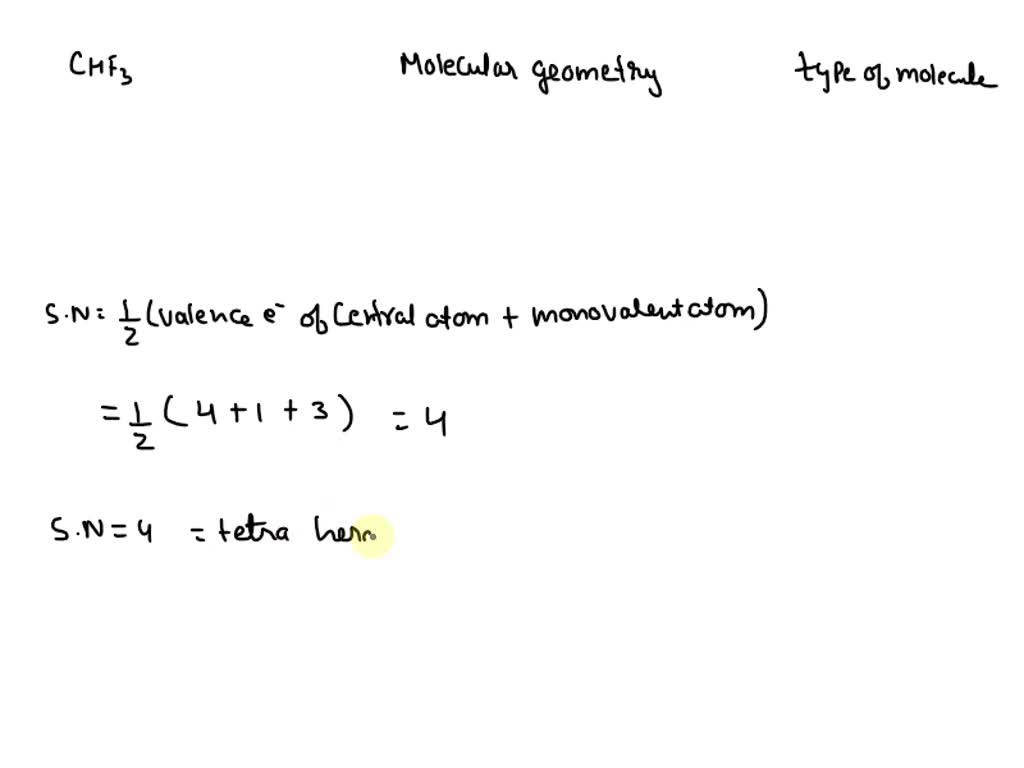 CHF₃ Molecular geometry type of molecule
S.N = 1/2 (valence e⁻ of Central atom + monovalent atom)
= 1/2 (4 + 1 + 3) = 4
S.N = 4 = tetra